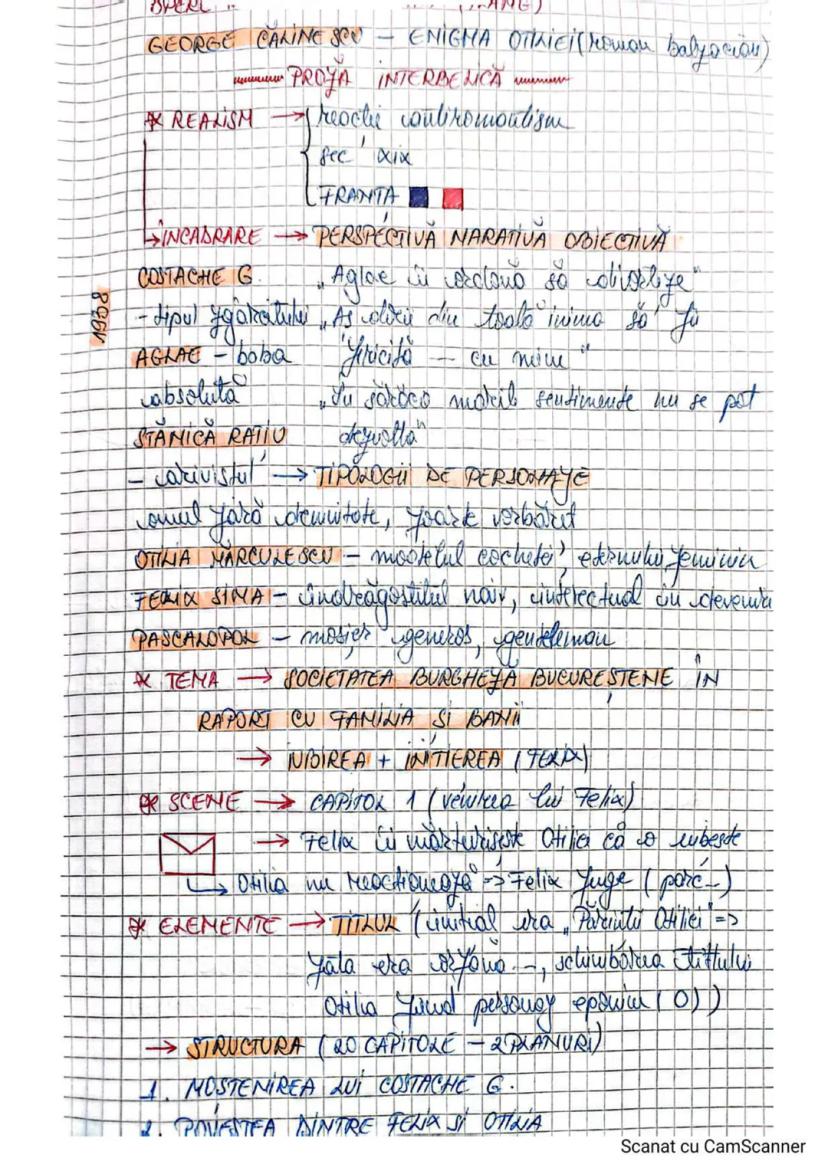 GEORGE CĂLINESCU – ENIGMA OTILIEI (roman balzacian)
PROZĂ INTERBELICĂ
* REALISM → reacție contiromantism
sec XIX
FRANȚA
→ ÎNCADRARE → PERSPECTIVĂ NARATIVĂ OBIECTIVĂ
1938
COSTACHE G. „Aglae îi ordonă să
- tipul zgârcitului „Aș din toată inima să fii
AGLAE – baba fericită – cu mine"
absolută „În săraco sentimente nu se pot
STĂNICĂ RAȚIU dezvolta"
- arivistul → TIPOLOGII DE PERSONAJE
omul fără demnitate, foarte vorbăreț
OTILIA MĂRCULESCU – modelul cochetei, eternului feminin
FELIX SIMA – îndrăgostitul naiv, intelectual în devenire
PASCALOPOL – moșier generos, gentleman
* TEMA → SOCIETATEA BURGHEZĂ BUCUREȘTENE ÎN
RAPORT CU FAMILIA ȘI BANII
→ IUBIREA + INIȚIEREA (FELIX)
* SCENE → CAPITOL 1 (venirea lui Felix)
→ Felix îi mărturisește Otiliei că o iubește
Otilia nu reacționează => Felix fuge (parc –)
* ELEMENTE → TITLUL (inițial era „Părinții Otiliei" =>
fata era orfană –, schimbarea titlului
Otilia fiind personaj eponim (O))
→ STRUCTURA (20 CAPITOLE – 2 PLANURI)
1. MOȘTENIREA LUI COSTACHE G.
2. POVESTEA DINTRE FELIX ȘI OTILIA
Scanat cu CamScanner